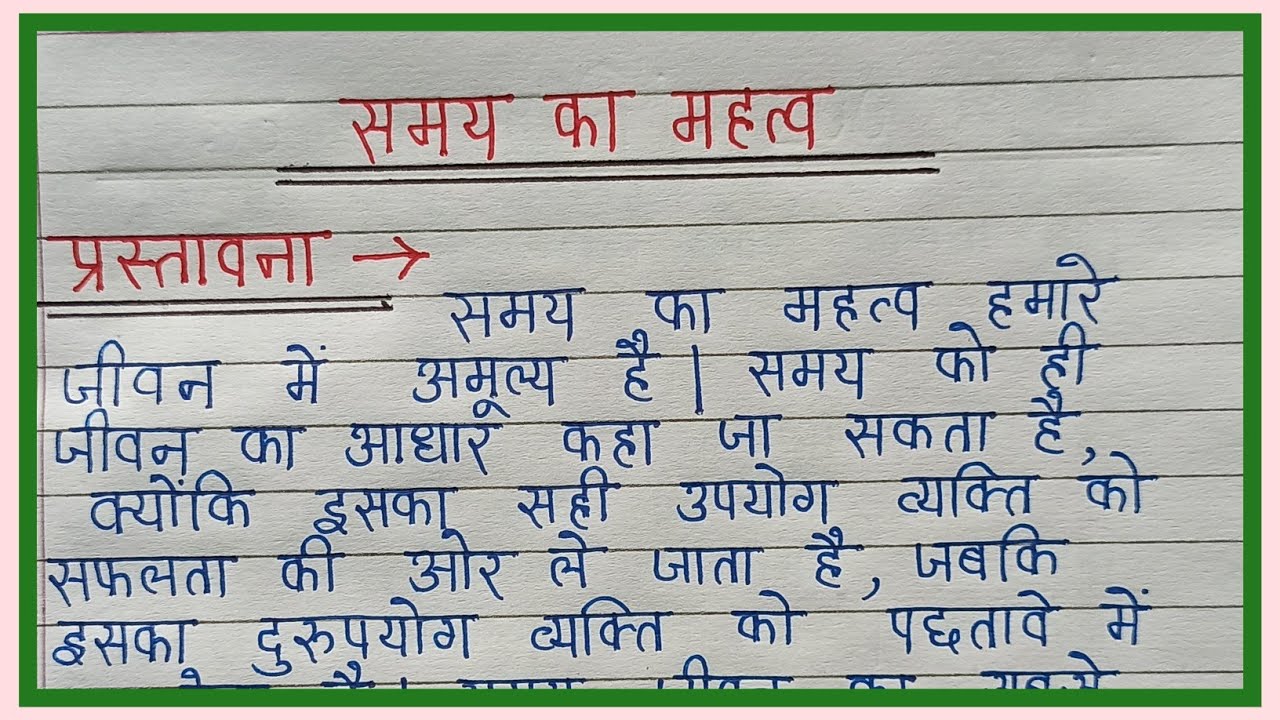 समय का महत्व
प्रस्तावना →
समय का महत्व हमारे
जीवन में अमूल्य है। समय को ही
जीवन का आधार कहा जा सकता है,
क्योंकि इसका सही उपयोग व्यक्ति को
सफलता की ओर ले जाता है, जबकि
इसका दुरुपयोग व्यक्ति को पछतावे में